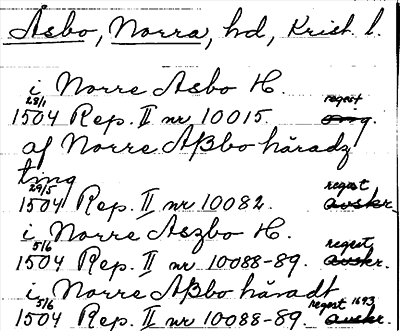 Åsbo, Norra, hd, Krist. l.
i Norre Asbo H.
28/1 regest
1504 Rep. II nr 10015. orig.
af Norre Aßbo häradz
ting
29/5 regest
1504 Rep. II nr 10082. avskr.
i Norre Aszbo H.
5/6 regest
1504 Rep. II nr 10088-89. avskr.
i Norre Aßbo häradt
5/6 regest 1693
1504 Rep. II nr 10088-89. avskr.